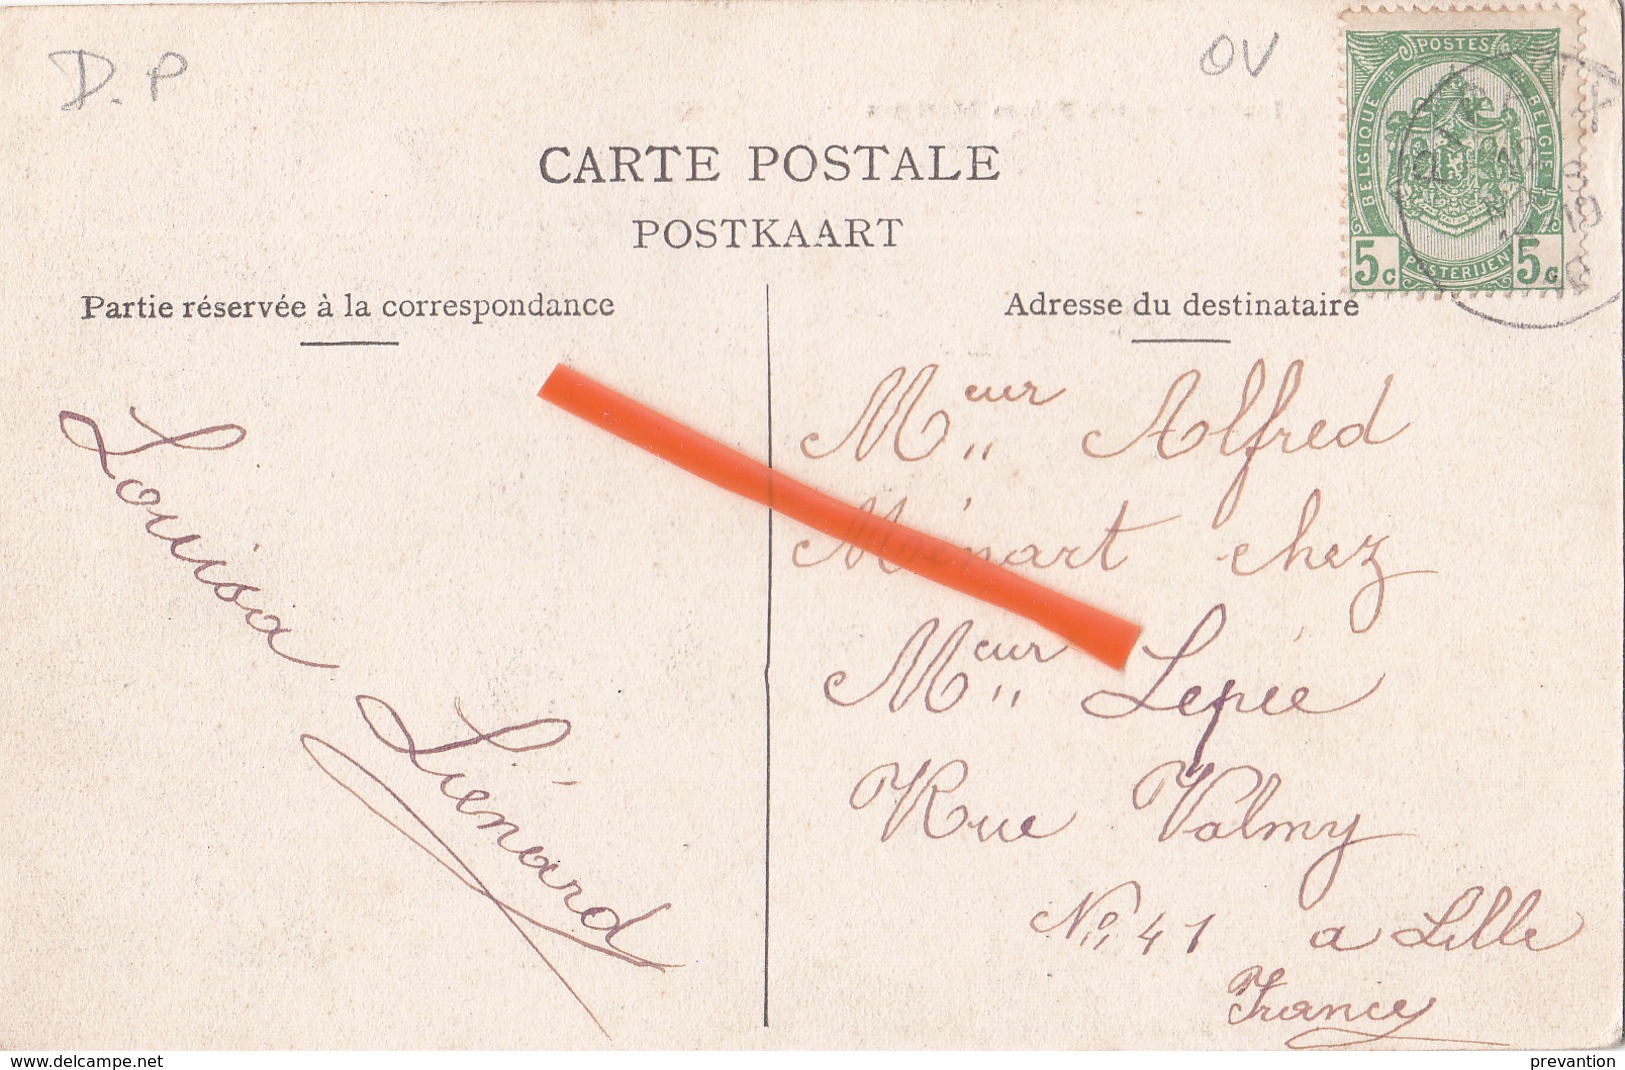 D.P
OV
POSTES
BELGIQUE
BELGIE
5c 5c
POSTERIJEN
12
CARTE POSTALE
POSTKAART
Partie réservée à la correspondance
Adresse du destinataire
Louisa Liénard
Meur Alfred
Ménart chez
Meur Lepée
Rue Valmy
No 41 a Lille
France
www.delcampe.net
prevantion